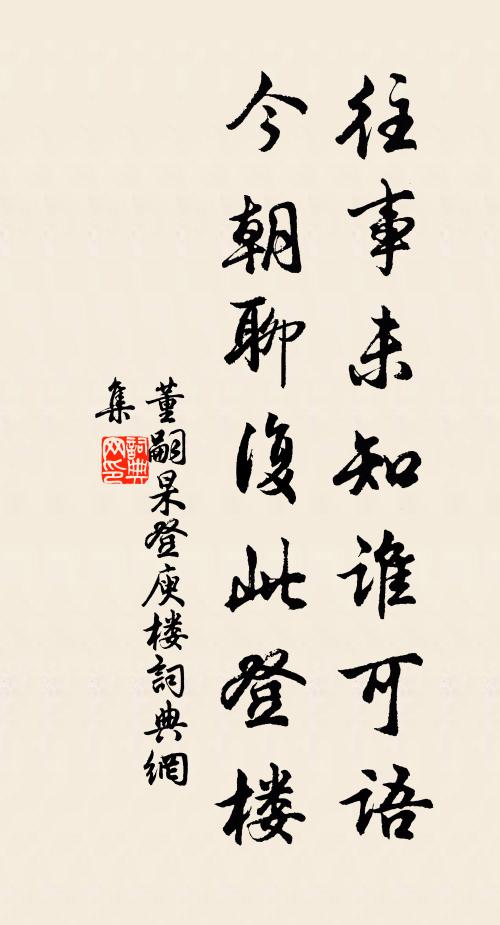 往事未知谁可语
今朝聊復此登楼
董嗣杲登庾楼詞典網
集
詞典
网印